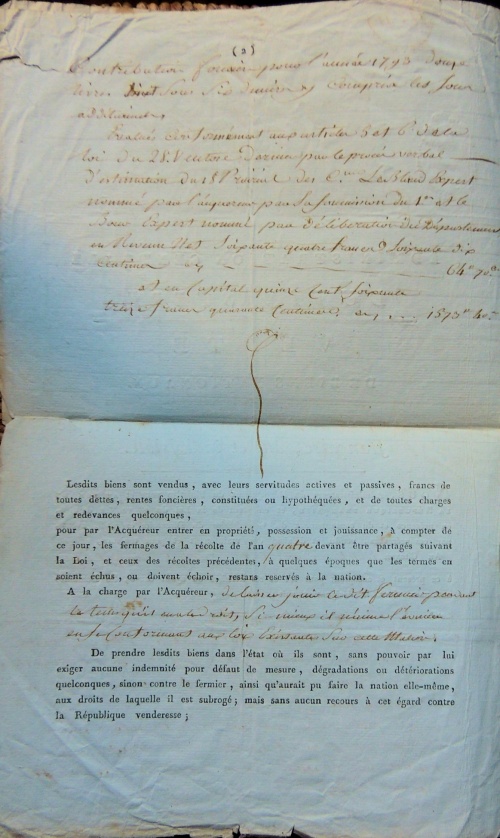 (2)
Contribution foncière pour l'année 1793 douze
livres Sept Sous Six deniers y Compris les Sous
additionels,
Evalués Conformément aux articles 5 et 6 de la
loi du 28 Ventose Dernier par le procès verbal
D'estimation du 18 Prairial des C.ens Le Blond Expert
nommé par l'acquereur par Sa Soumission du 1.er et le
Expert nommé par Déliberation du Département
en Revenu Net Soixante quatre francs Soixante dix
Centimes cy 64.# 70.c
et en Capital quinze Cent Soixante
treize francs quarante Centimes cy 1573.# 40.c
Lesdits biens sont vendus, avec leurs servitudes actives et passives, francs de
toutes dettes, rentes foncières, constituées ou hypothéquées, et de toutes charges
et redevances quelconques,
pour par l'Acquéreur entrer en propriété, possession et jouissance, à compter de
ce jour, les fermages de la récolte de l'an quatre devant être partagés suivant
la Loi, et ceux des récoltes précédentes, à quelques époques que les termes en
soient échus, ou doivent échoir, restans reservés à la nation.
A la charge par l'Acquéreur, de laisser jouir ledit fermier pendant
le tems qu'il en a le droit, Si mieux il n'aime l'évincer
en Se Conformant aux loix Existantes Sur cette Matiere.
De prendre lesdits biens dans l'état où ils sont, sans pouvoir par lui
exiger aucune indemnité pour défaut de mesure, dégradations ou détériorations
quelconques, sinon contre le fermier, ainsi qu'aurait pu faire la nation elle-même,
aux droits de laquelle il est subrogé; mais sans aucun recours à cet égard contre
la République venderesse;